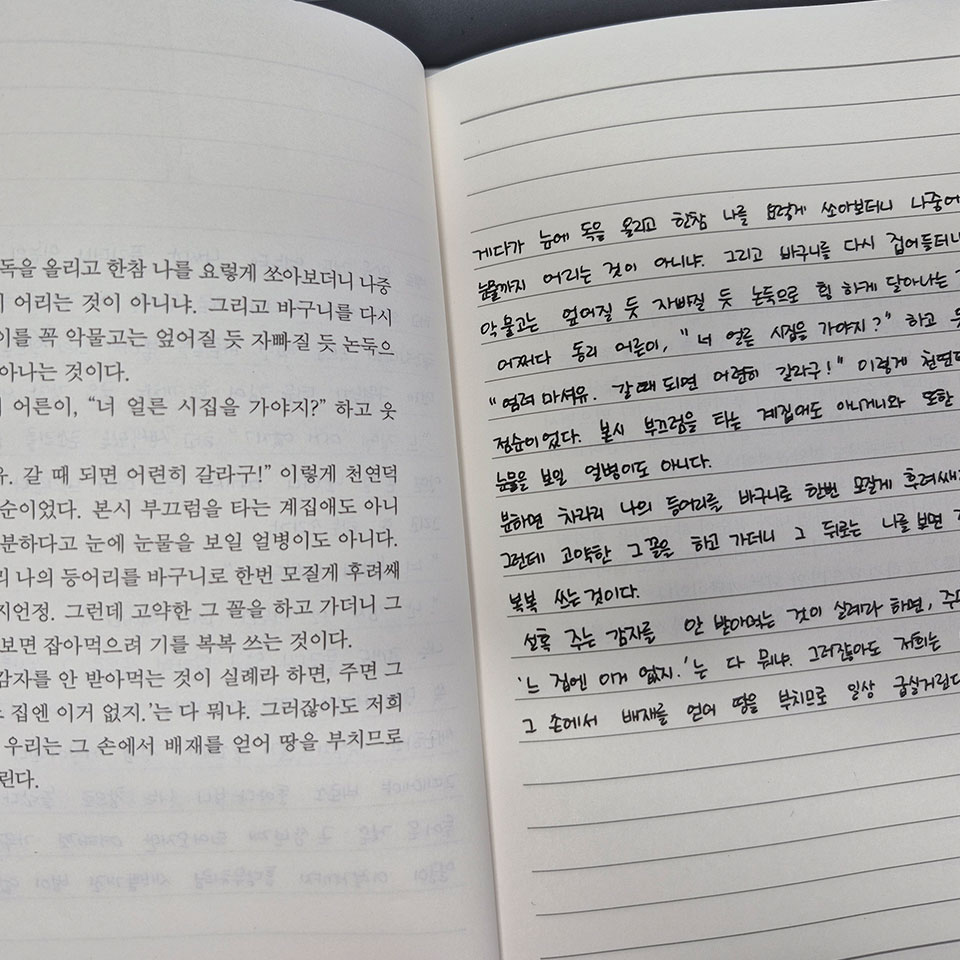 독을 올리고 한참 나를 요렇게 쏘아보더니 나중
어리는 것이 아니냐. 그리고 바구니를 다시
이를 꼭 악물고는 엎어질 듯 자빠질 듯 논둑으
아나는 것이다.
어른이, “너 얼른 시집을 가야지?” 하고 웃
유. 갈 때 되면 어련히 갈라구!” 이렇게 천연덕
순이었다. 본시 부끄럼을 타는 계집애도 아니
분하다고 눈에 눈물을 보일 얼병이도 아니다.
리 나의 등어리를 바구니로 한번 모질게 후려쌔
지언정. 그런데 고약한 그 꼴을 하고 가더니 그
보면 잡아먹으려 기를 복복 쓰는 것이다.
감자를 안 받아먹는 것이 실례라 하면, 주면 그
집엔 이거 없지.’는 다 뭐냐. 그러잖아도 저희
우리는 그 손에서 배재를 얻어 땅을 부치므로
린다.
게다가 눈에 독을 올리고 한참 나를 요렇게 쏘아보더니 나중에
눈물까지 어리는 것이 아니냐. 그리고 바구니를 다시 집어들더니
악물고는 엎어질 듯 자빠질 듯 논둑으로 힝 하게 달아나는
어쩌다 동리 어른이, “너 얼른 시집을 가야지?” 하고
“염려 마셔유. 갈 때 되면 어련히 갈라구!” 이렇게 천연덕
점순이었다. 본시 부끄럼을 타는 계집애도 아니거니와 또한
눈물을 보일 얼병이도 아니다.
분하면 차라리 나의 등어리를 바구니로 한번 모질게 후려쌔
그런데 고약한 그 꼴을 하고 가더니 그 뒤로는 나를 보면
복복 쓰는 것이다.
설혹 주는 감자를 안 받아먹는 것이 실례라 하면, 주면
‘느 집엔 이거 없지.’는 다 뭐냐. 그러잖아도 저희는
그 손에서 배재를 얻어 땅을 부치므로 일상 굽실거린다